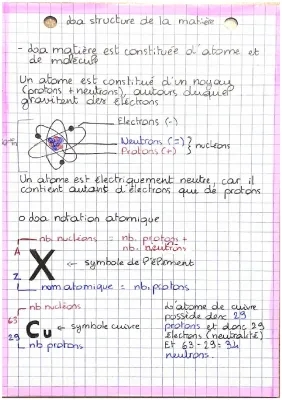 La structure de la matière
- La matière est constituée d'atome et
de molécule
Un atome est constitué d'un noyau
(protons + neutrons), autours duquel
gravitent des électrons
Electrons (-)
Neutrons (=)
Protons (+)
nucléons
Un atome est électriquement neutre, car il
contient autant d'électrons que de protons
o La notation atomique
nb. nucléons = nb. protons +
nb. neutrons
A
X ← symbole de l'élément
Z
nom atomique = nb. protons
nb nucléons
63
Cu ← symbole cuivre
29
nb protons
L'atome de cuivre
possède donc 29
protons et donc 29
électrons (neutralité)
Et 63 - 29 = 34
neutrons.